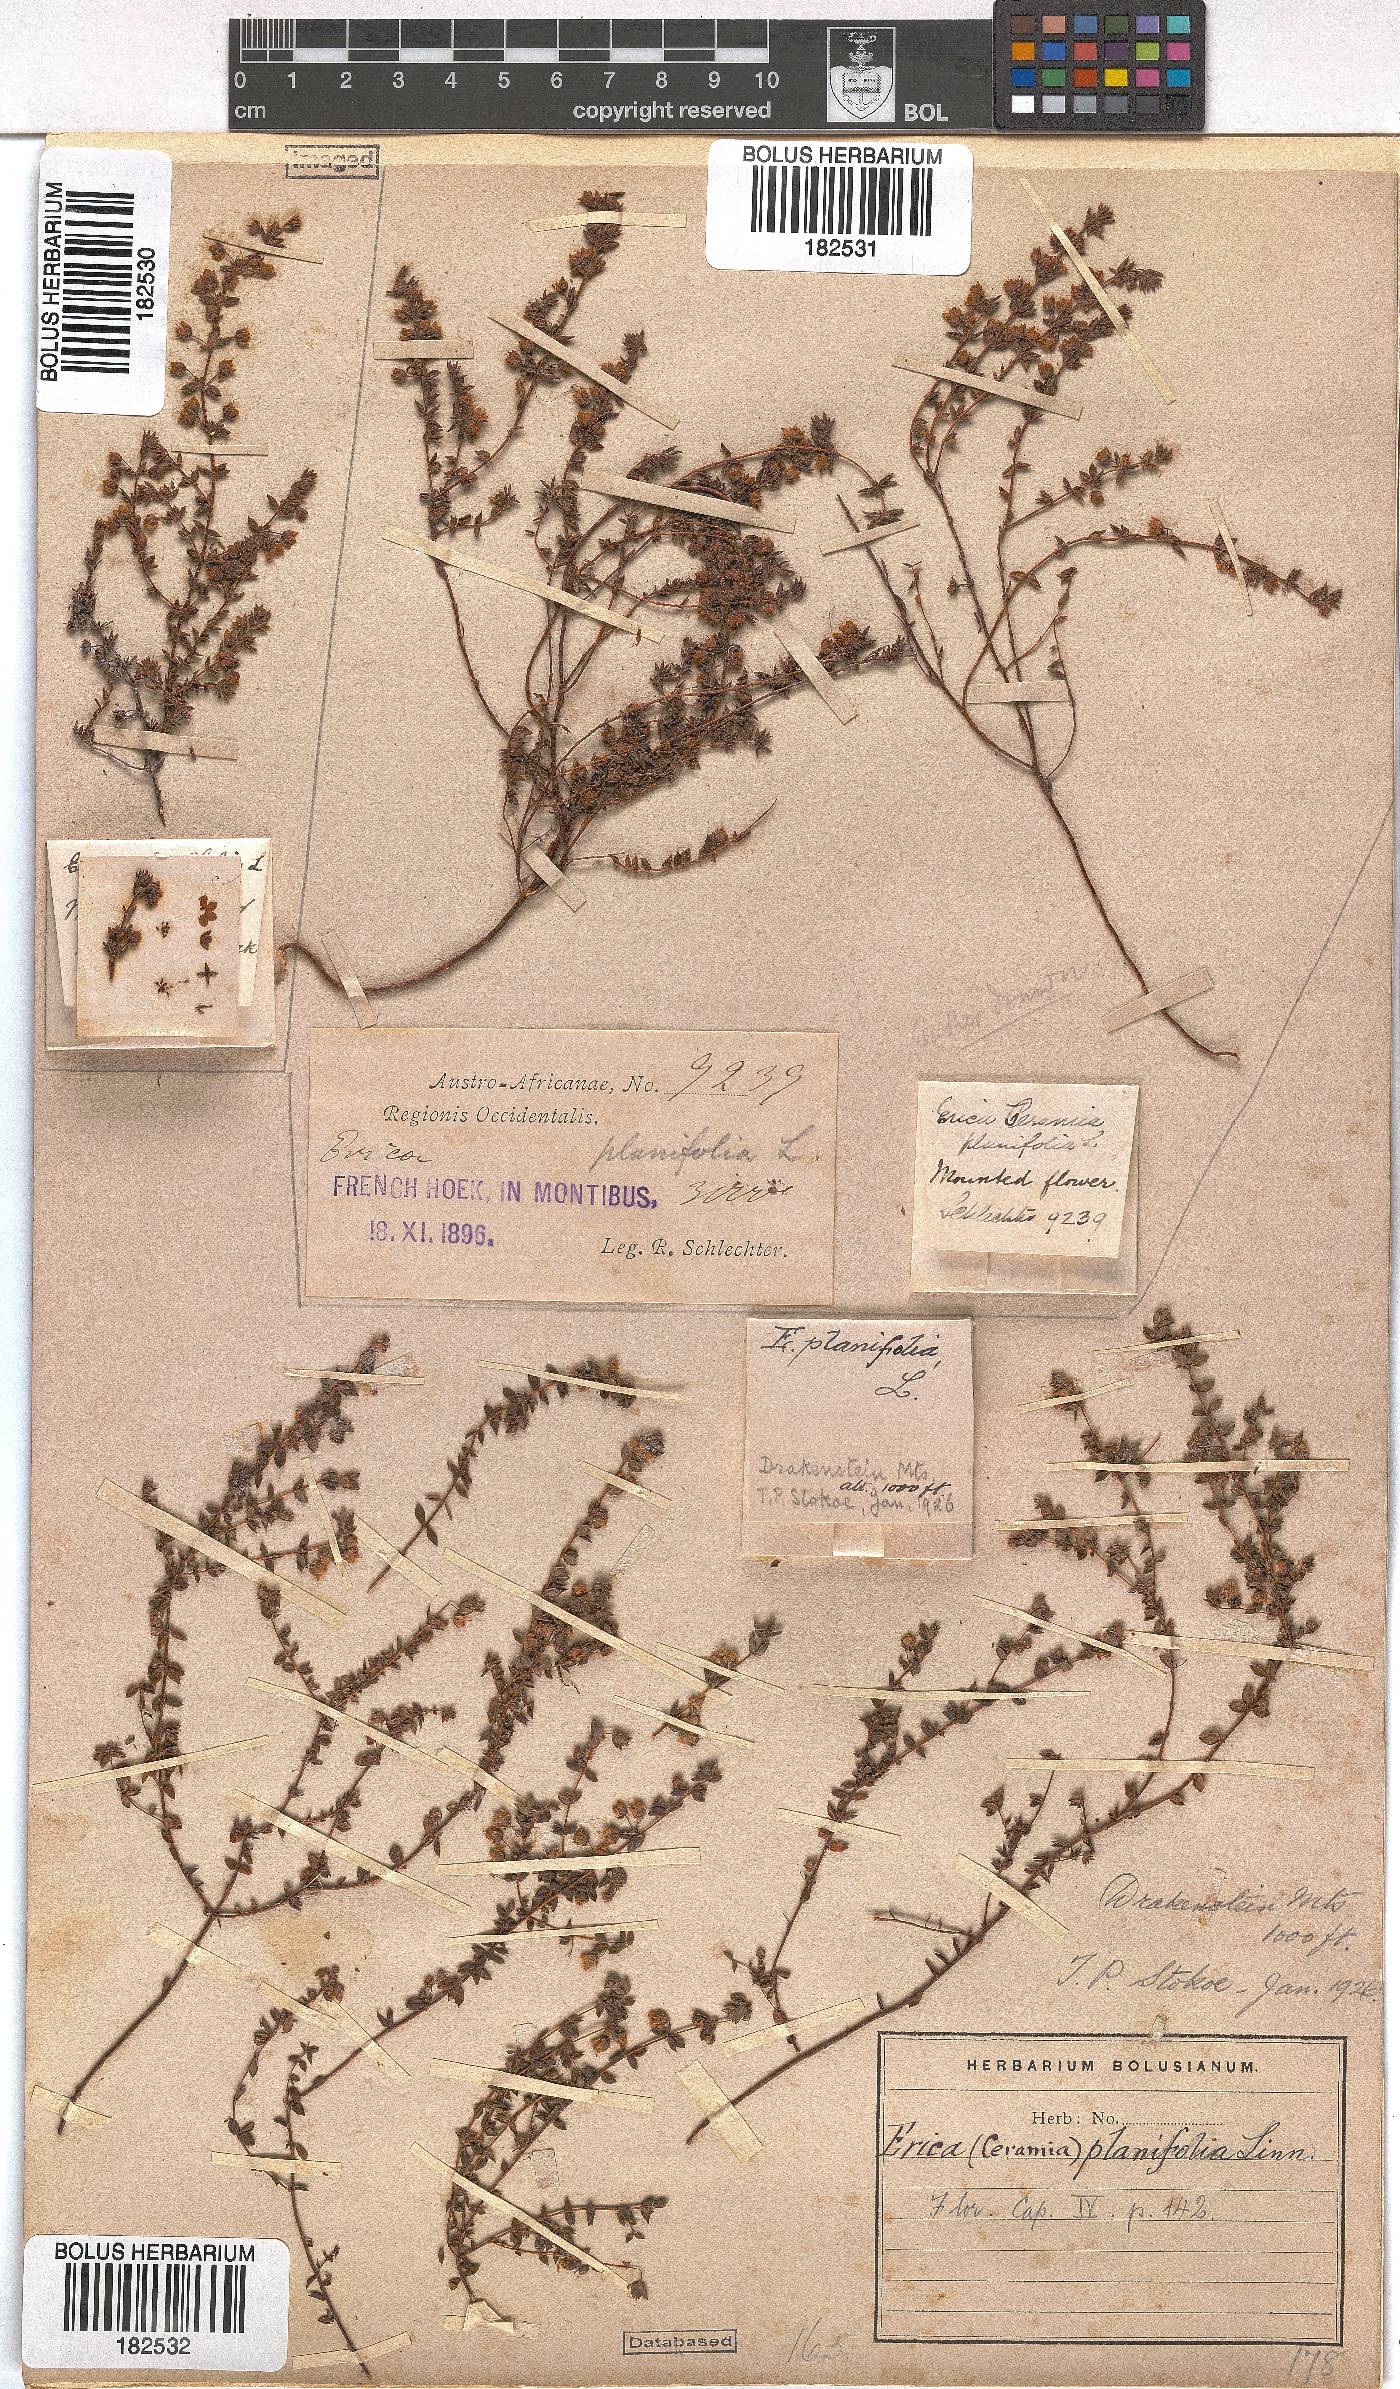 0 1 2 3 4 5 6 7 8 9 10
cm
copyright reserved
BOL
imaged
BOLUS HERBARIUM
182530
BOLUS HERBARIUM
182531
L
Austro-Africanae, No. 9239
Regionis Occidentalis.
Erica planifolia L.
FRENCH HOEK, IN MONTIBUS,
18. XI. 1896.
Leg. R. Schlechter.
drawn
Erica Ceramia
planifolia L.
Mounted flower.
Schlechter 9239
E. planifolia,
L.
Drakenstein Mts
alt. 1000 ft.
T.P. Stokoe, Jan. 1926
Drakenstein Mts
1000 ft.
T. P. Stokoe - Jan. 1926.
HERBARIUM BOLUSIANUM.
Herb: No.
Erica (Ceramia) planifolia Linn.
Flor. Cap. IV. p. 142.
BOLUS HERBARIUM
182532
Databased
178